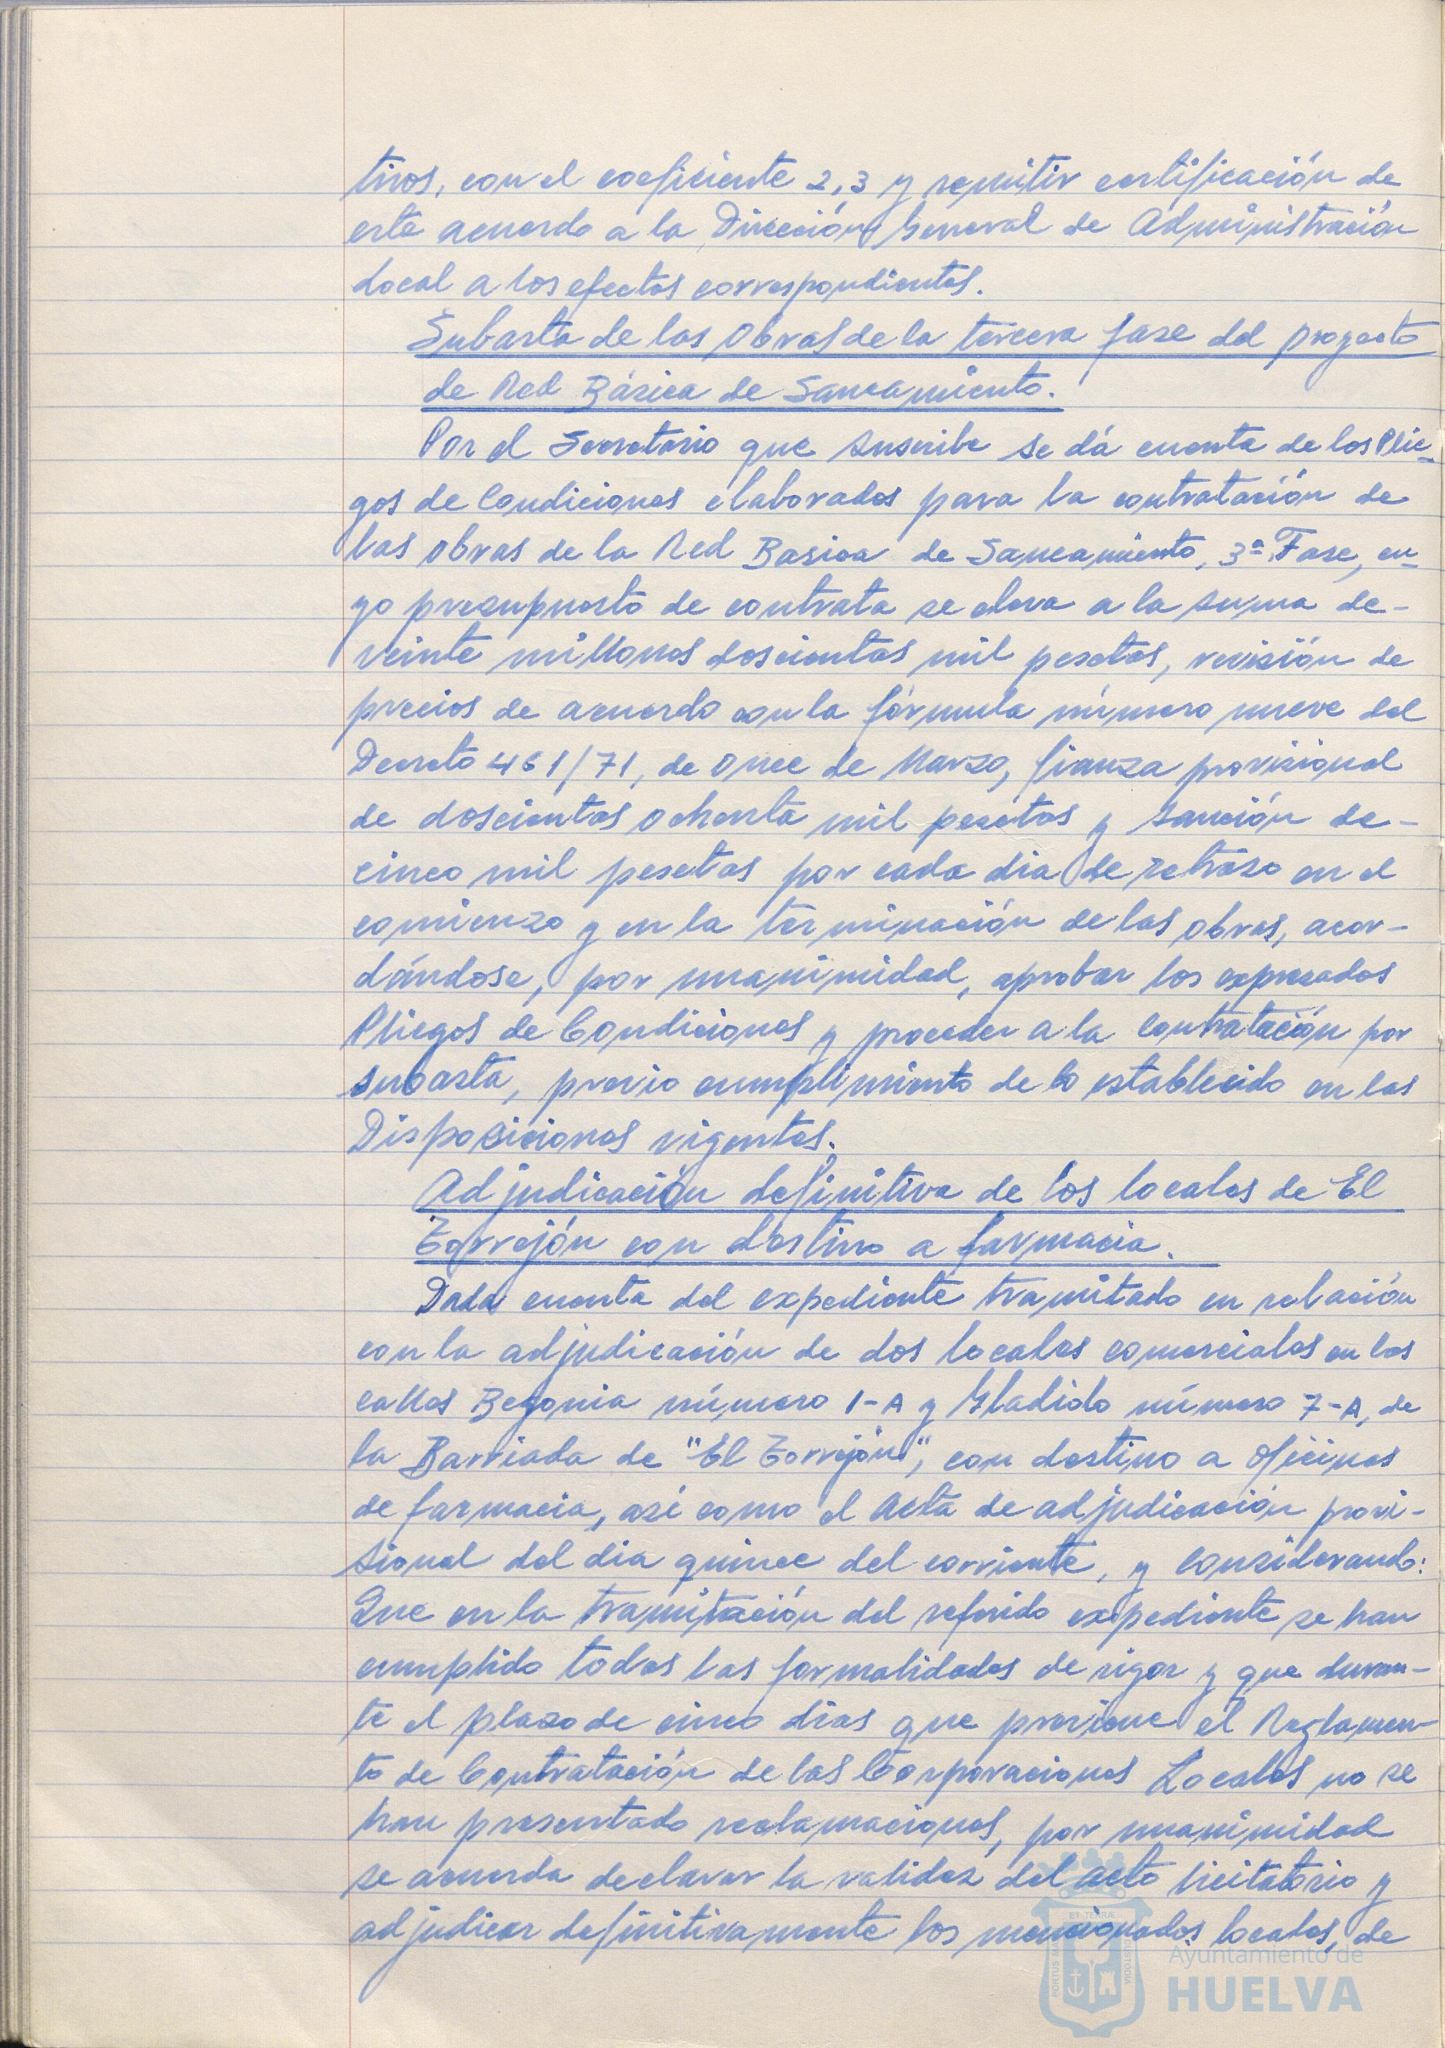 tivos, con el coeficiente 2,3 y remitir certificación de
este acuerdo a la Dirección General de Administración
Local a los efectos correspondientes.
Subasta de las Obras de la tercera fase del proyecto
de Red Básica de Saneamiento.
Por el Secretario que suscribe se dá cuenta de los Plie-
gos de Condiciones elaborados para la contratación de
las obras de la Red Basica de Saneamiento, 3ª Fase, cu-
yo presupuesto de contrata se eleva a la suma de-
veinte millones doscientas mil pesetas, revisión de
precios de acuerdo con la fórmula número nueve del
Decreto 461/71, de once de Marzo, fianza provisional
de doscientas ochenta mil pesetas y sanción de-
cinco mil pesetas por cada dia de retraso en el
comienzo y en la terminación de las obras, acor-
dándose, por unanimidad, aprobar los expresados
Pliegos de Condiciones y proceder a la contratación por
subasta, previo cumplimiento de lo establecido en las
Disposiciones vigentes.
Adjudicación definitiva de los locales de El
Torrejón con destino a farmacia.
Dada cuenta del expediente tramitado en relación
con la adjudicación de dos locales comerciales en las
calles Begonia número 1-A y Gladiolo número 7-A, de
la Barriada de "El Torrejón", con destino a oficinas
de farmacia, asi como el Acta de adjudicación provi-
sional del dia quince del corriente, y considerando:
Que en la tramitación del referido expediente se han
cumplido todas las formalidades de rigor y que duran-
te el plazo de cinco dias que previene el Reglamen-
to de Contratación de las Corporaciones Locales no se
han presentado reclamaciones, por unanimidad
se acuerda declarar la validez del acto licitatorio y
adjudicar definitivamente los mencionados locales, de
Ayuntamiento de
HUELVA